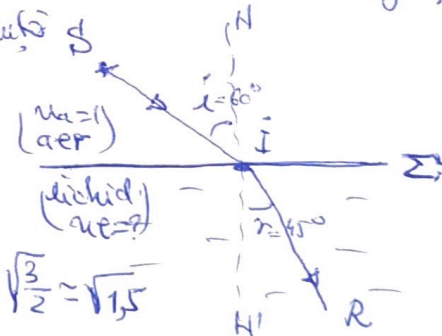 S
N
i=60°
(na=1)
(aer)
I
Σ
(lichid,)
(ne=?)
r=45°
√3/2 ≃ √1,5
R
N'